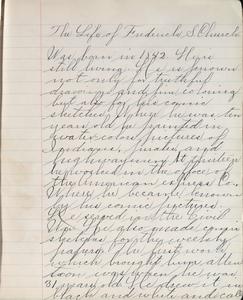 The Life of Frederick S. Church
Was born in 1842. He is
still living. He is known
not only for truthful
drawings and fine coloring
but also for his comic
sketches. While he was ten
years old he painted in
water color pictures of
Indians, Pirates and
highwaymen. At
he worked in the office of
the American Express Co.
Where he became known
by his comic pictures.
He served in the Civil
War. He also made comic
sketches for the weekly
papers. The first work
which brought him atten-
tion was when he was
31 years old. He drew it in
black and white and